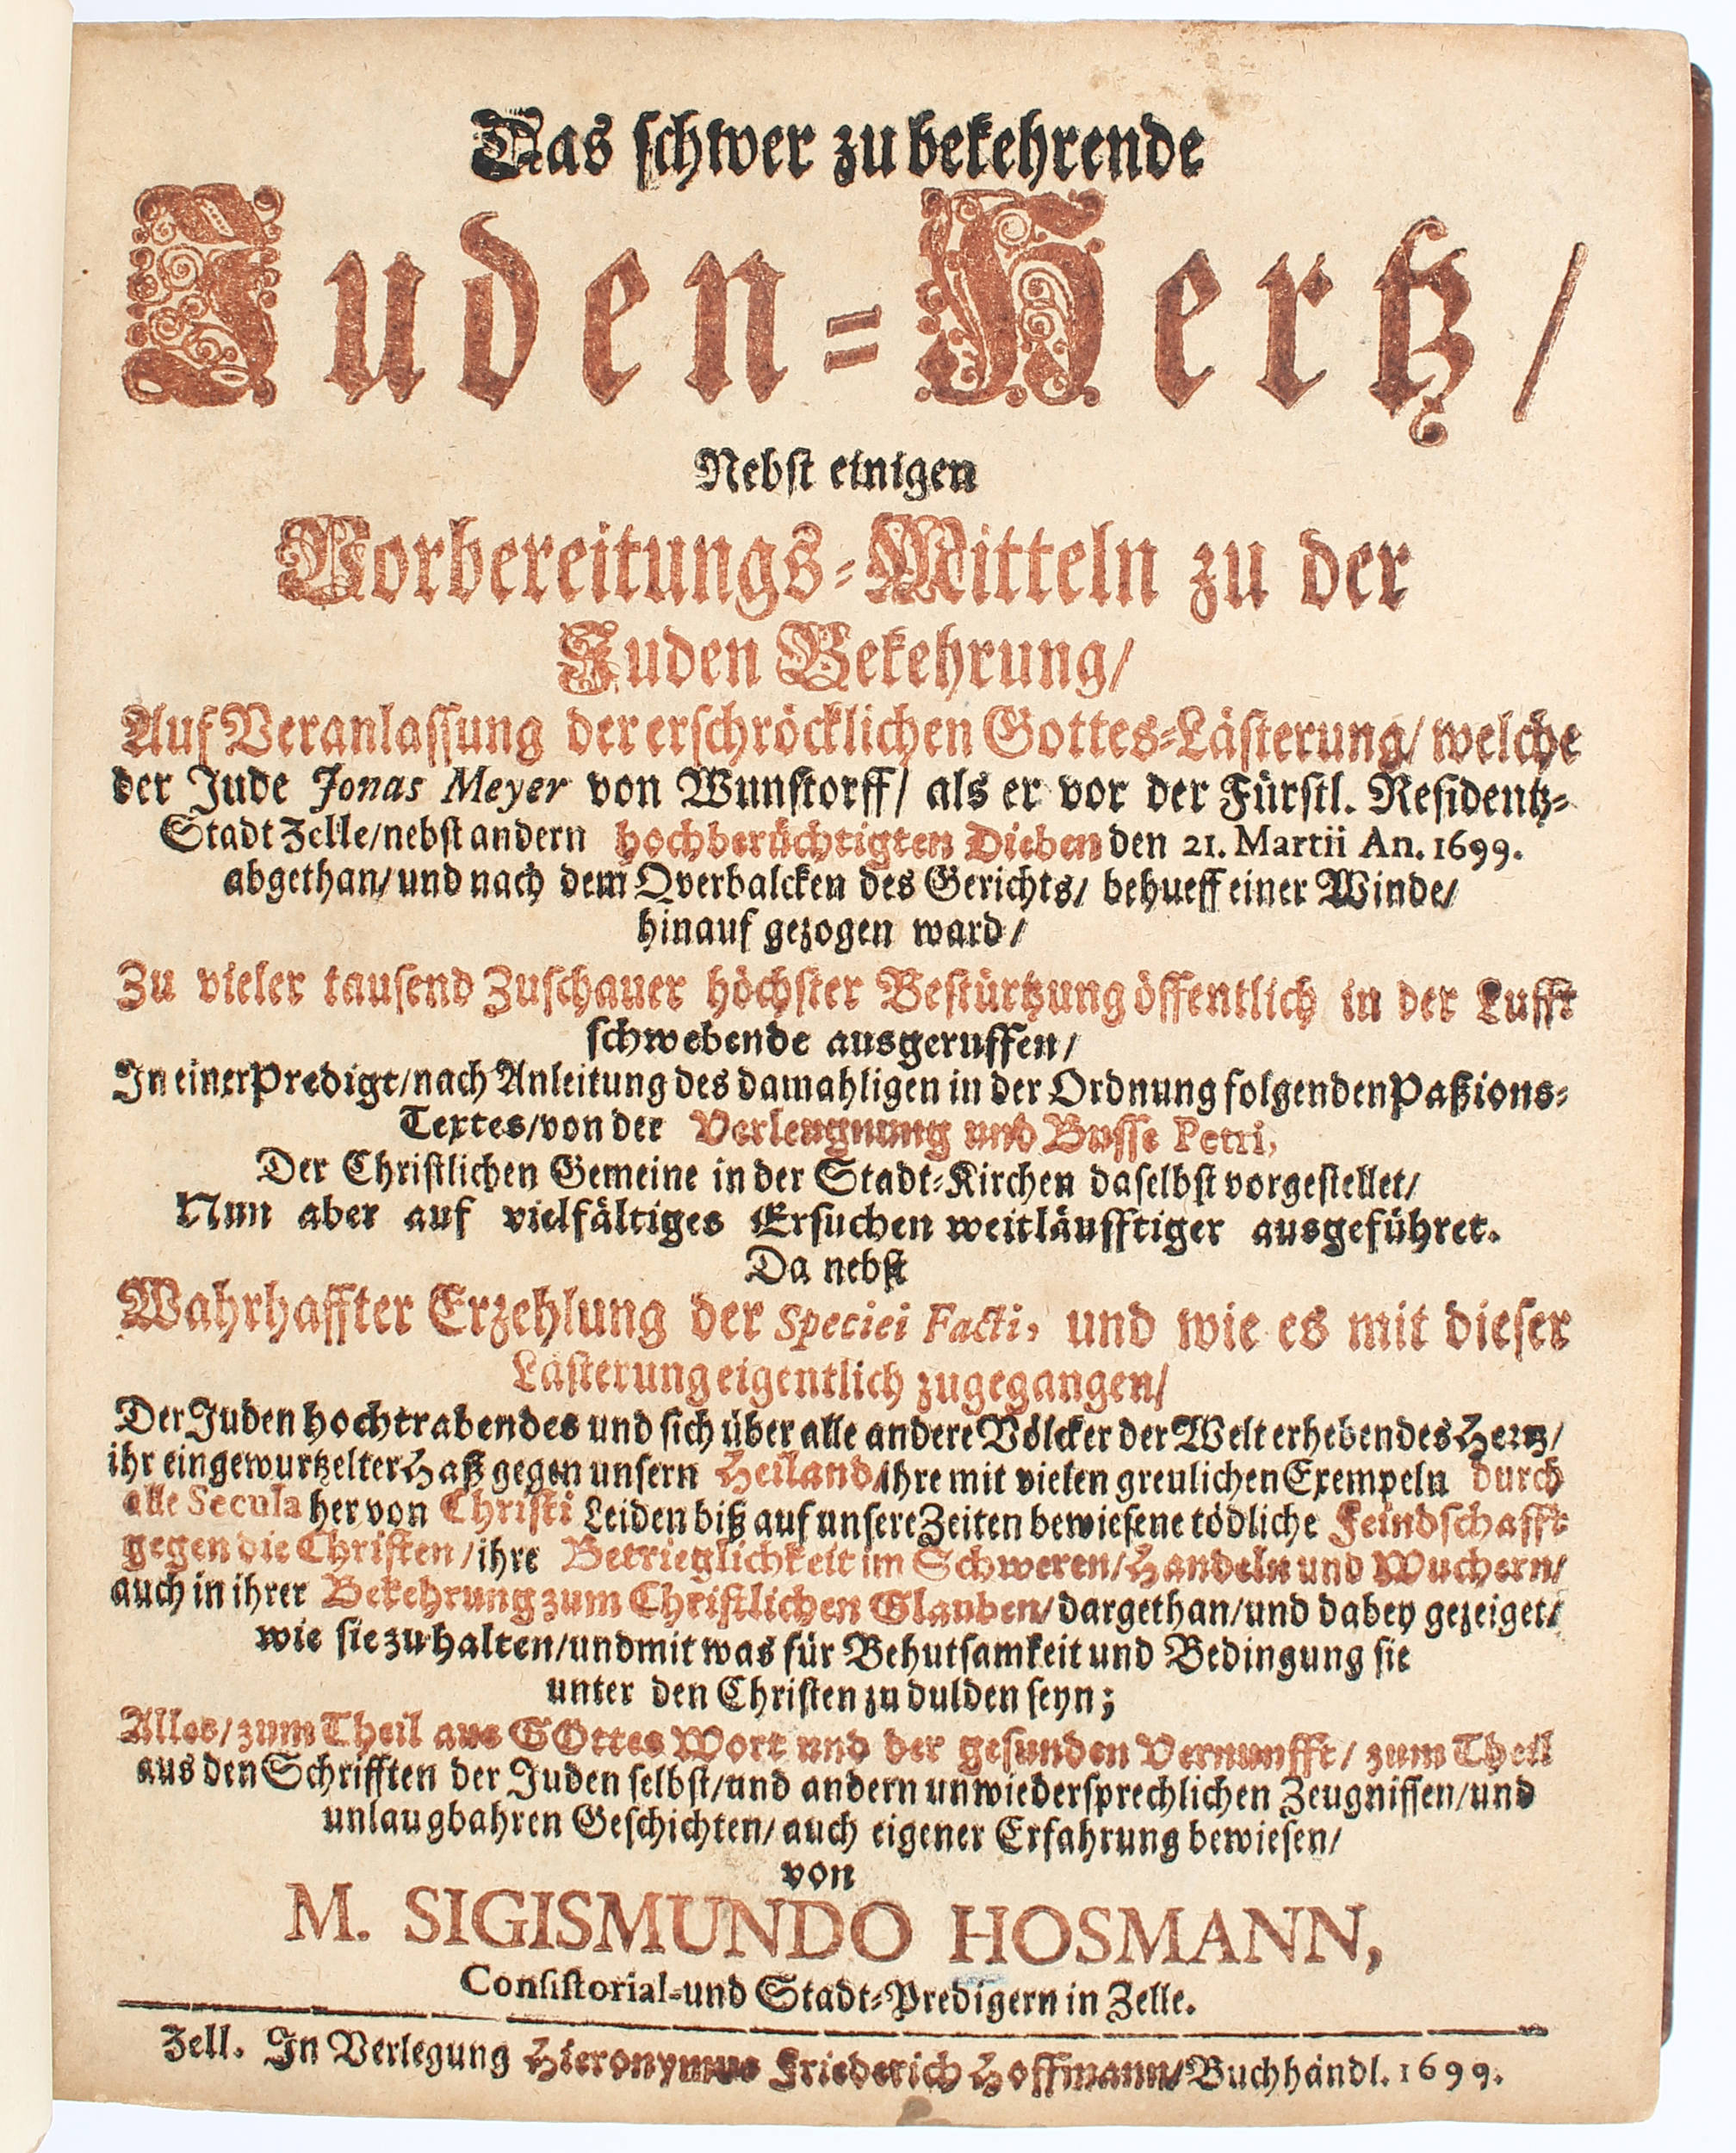 Das schwer zu bekehrende
Juden-Hertz/
Nebst einigen
Vorbereitungs-Mitteln zu der
Juden Bekehrung/
Auf Veranlassung der erschröcklichen Gottes-Lästerung/ welche
der Jude Jonas Meyer von Wunstorff/ als er vor der Fürstl. Residentz-
Stadt Zelle/nebst andern hochberüchtigten Dieben den 21. Martii An. 1699.
abgethan/ und nach dem Qverbalcken des Gerichts/ behueff einer Winde/
hinauf gezogen ward/
Zu vieler tausend Zuschauer höchster Bestürtzung öffentlich in der Lufft
schwebende ausgeruffen/
In einer Predigt/nach Anleitung des damahligen in der Ordnung folgenden Paßions-
Textes/von der Verleugnung und Busse Petri,
Der Christlichen Gemeine in der Stadt-Kirchen daselbst vorgestellet/
Nun aber auf vielfältiges Ersuchen weitläufftiger ausgeführet.
Da nebst
Wahrhaffter Erzehlung der Speciei Facti, und wie es mit dieser
Lästerung eigentlich zugegangen/
Der Juden hochtrabendes und sich über alle andere Völcker der Welt erhebendes Hertz/
ihr eingewurtzelter Haß gegen unsern Heiland/ihre mit vielen greulichen Exempeln durch
alle Secula her von Christi Leiden biß auf unsere Zeiten bewiesene tödliche Feindschafft
gegen die Christen/ihre Betrieglichkeit im Schweren/Handeln und Wuchern/
auch in ihrer Bekehrung zum Christlichen Glauben/dargethan/und dabey gezeiget/
wie sie zu halten/und mit was für Behutsamkeit und Bedingung sie
unter den Christen zu dulden seyn;
Alles/zum Theil aus GOttes Wort und der gesunden Vernunfft/ zum Theil
aus den Schrifften der Juden selbst/und andern unwiedersprechlichen Zeugnissen/und
unlaugbahren Geschichten/ auch eigener Erfahrung bewiesen/
von
M. SIGISMUNDO HOSMANN,
Consistorial-und Stadt-Predigern in Zelle.
Zell. In Verlegung Hieronymus Friederich Hoffmann/Buchhändl. 1699.